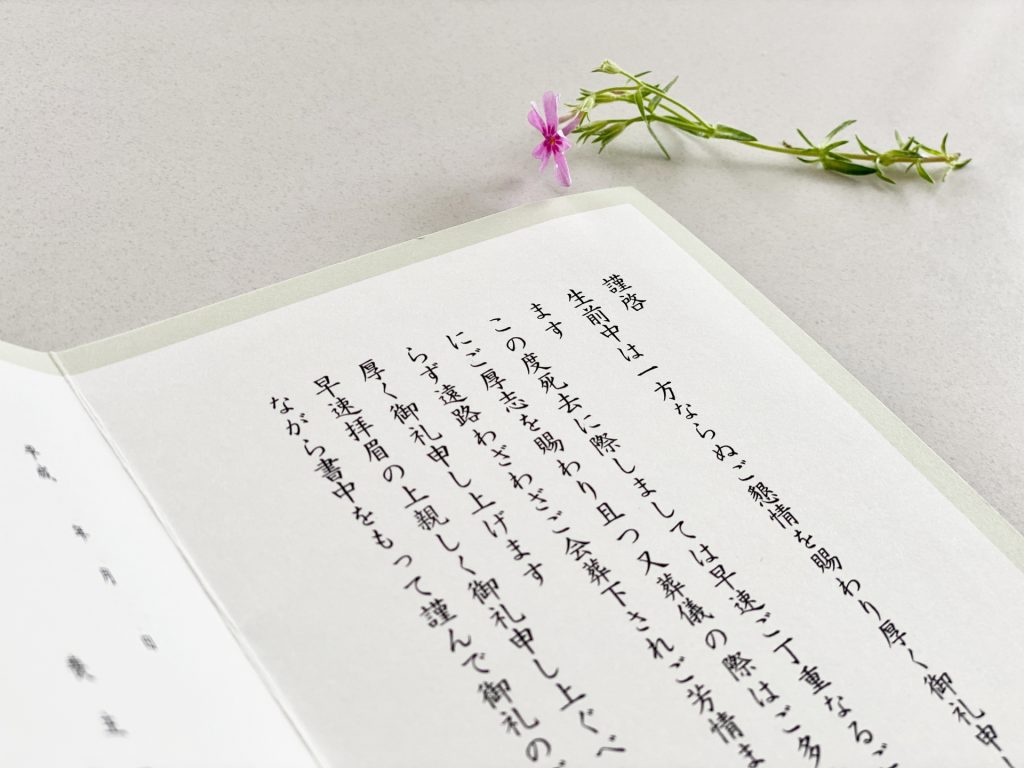 謹啓
生前中は一方ならぬご懇情を賜わり厚く御礼申し
ます
この度死去に際しましては早速ご丁重なるご
にご厚志を賜わり且つ又葬儀の際はご多
らず遠路わざわざご会葬下されご芳情ま
厚く御礼申し上げます
早速拝眉の上親しく御礼申し上ぐべ
ながら書中をもって謹んで御礼の
年
月
日